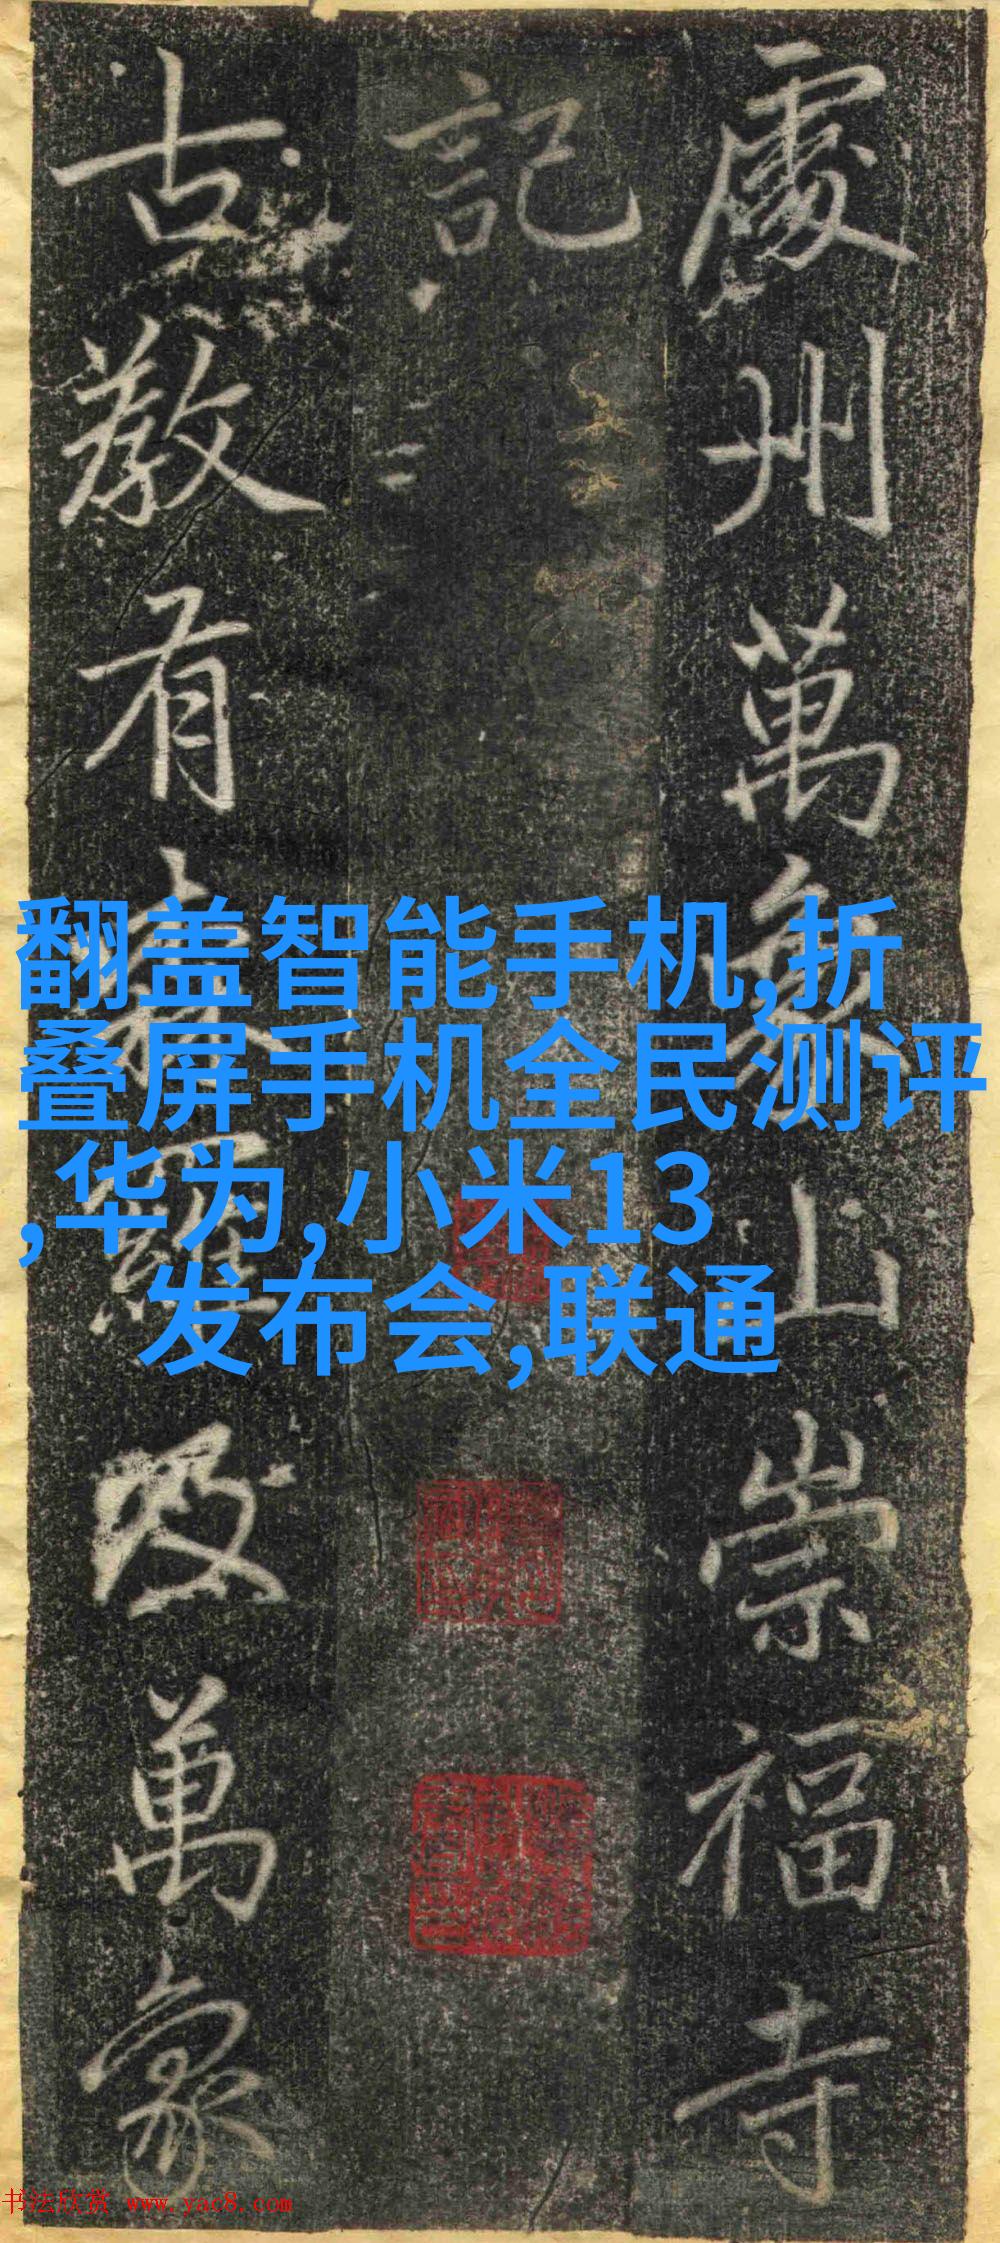 處州萬象山崇福寺
記
古教有森羅及萬象
翻盖智能手机,折
叠屏手机全民测评
,华为,小米13
发布会,联通
书法欣赏 www.yac8.com